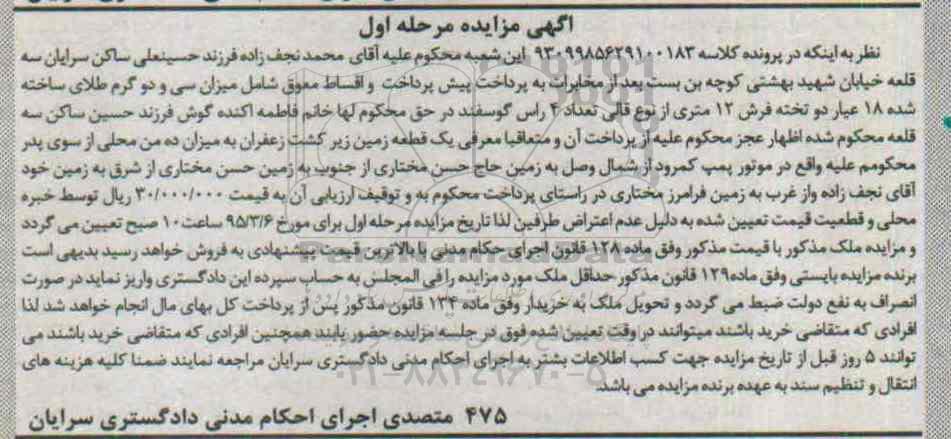 آگهی مزایده مرحله اول
نظر به اینکه در پرونده کلاسه ۹۳۰۹۹۸۵۶۲۹۱۰۰۱۸۳ این شعبه محکوم علیه آقای محمد نجف زاده فرزند حسینعلی ساکن سرایان سه
قلعه خیابان شهید بهشتی کوچه بن بست بعد از مخابرات به پرداخت پیش پرداخت و اقساط معوق شامل میزان سی و دو گرم طلای ساخته
شده ۱۸ عیار دو تخته فرش ۱۲ متری از نوع قالی تعداد ۴ راس گوسفند در حق محکوم لها خانم فاطمه اکنده گوش فرزند حسین ساکن سه
قلعه محکوم شده اظهار عجز محکوم علیه از پرداخت آن و متعاقبا معرفی یک قطعه زمین زیر کشت زعفران به میزان ده من محلی از سوی پدر
محکومم علیه واقع در موتور پمپ کمرود از شمال وصل به زمین حاج حسن مختاری از جنوب به زمین حسن مختاری از شرق به زمین خود
آقای نجف زاده واز غرب به زمین فرامرز مختاری در راستای پرداخت محکوم به و توقیف ارزیابی آن به قیمت ۳۰/۰۰۰/۰۰۰ ریال توسط خبره
محلی و قطعیت قیمت تعیین شده به دلیل عدم اعتراض طرفین لذا تاریخ مزایده مرحله اول برای مورخ ۹۵/۳/۶ ساعت ۱۰ صبح تعیین می گردد
و مزایده ملک مذکور با قیمت مذکور وفق ماده ۱۲۸ قانون اجرای حکام مدنی با بالاترین قیمت پیشنهادی به فروش خواهد رسید بدیهی است
برنده مزایده بایستی وفق ماده۱۲۹ قانون مذکور حداقل ملک مورد مزایده را فی المجلس به حساب سپرده این دادگستری واریز نماید در صورت
انصراف به نفع دولت ضبط می گردد و تحویل ملک به خریدار وفق ماده ۱۳۴ قانون مذکور پس از پرداخت کل بهای مال انجام خواهد شد لذا
افرادی که متقاضی خرید باشند میتوانند در وقت تعیین شده فوق در جلسه مزایده حضور یابند همچنین افرادی که متقاضی خرید باشند می
توانند ۵ روز قبل از تاریخ مزایده جهت کسب اطلاعات بشتر به اجرای احکام مدنی دادگستری سرایان مراجعه نمایند ضمنا کلیه هزینه های
انتقال و تنظیم سند به عهده برنده مزایده می باشد.
۴۷۵ متصدی اجرای احکام مدنی دادگستری سرایان
۰۲۱-۸۸۳۴۹۶۷۰-۵